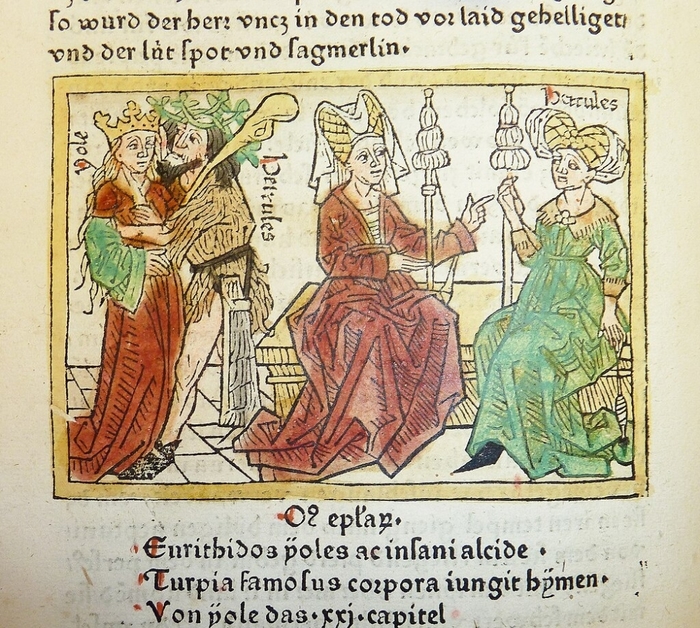 so wurd der herr vncz in den tod vor laid gehelliget
vnd der lüt spot vnd sagmerlin.
yole
Hercules
Hercules
Eurithidos yoles ac insani alcide .
Turpia famosus corpora iungit hymen.
Von yole das .xxj. capitel